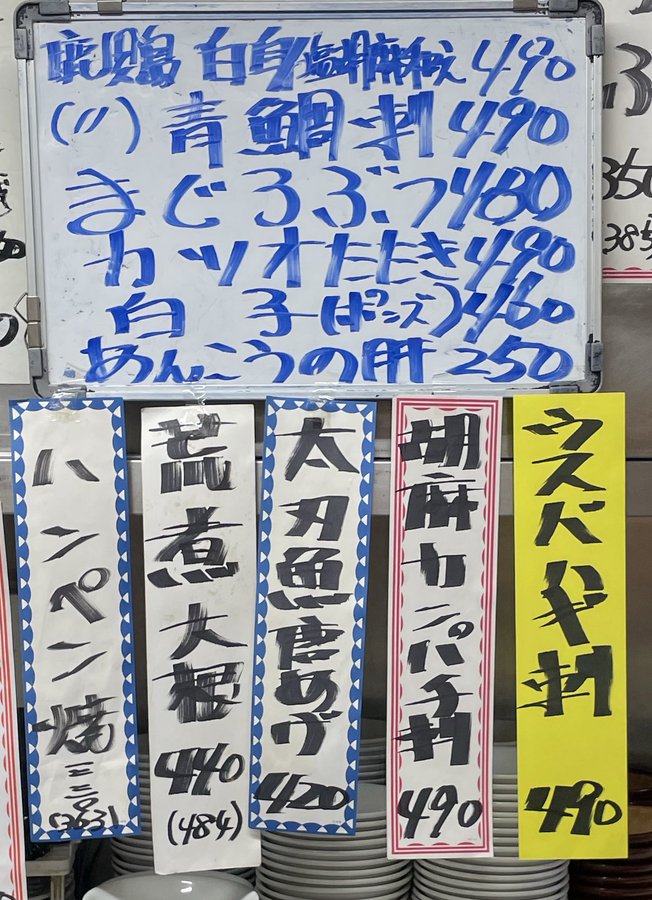 鹿児島 白身塩胡麻和え 490
(〃) 青鯛刺 490
まぐろぶつ 480
カツオたたき 490
白子(ポンズ) 460
あんこうの肝 250
350
385
ウスバハギ刺 490
胡麻カンパチ刺 490
太刀魚唐あげ 420
荒煮大根 440
(484)
ハンペン焼 三三〇
(363)